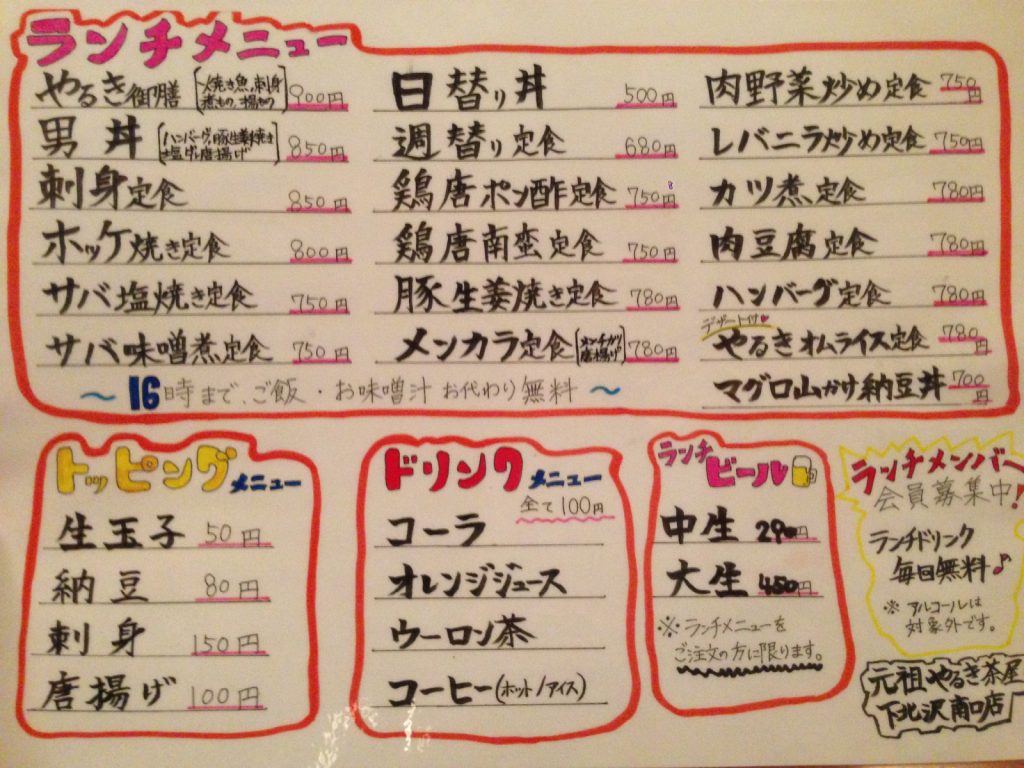 ランチメニュー
やるき御膳 [焼き魚,刺身 煮もの,揚もの] 900円
男丼 [ハンバーグ,豚生姜焼き 塩ダレ唐揚げ] 850円
刺身定食 850円
ホッケ焼き定食 800円
サバ塩焼き定食 750円
サバ味噌煮定食 750円
日替り丼 500円
週替り定食 680円
鶏唐ポン酢定食 750円
鶏唐南蛮定食 750円
豚生姜焼き定食 780円
メンカラ定食 [メンチカツ 唐揚げ] 780円
肉野菜炒め定食 750円
レバニラ炒め定食 750円
カツ煮定食 780円
肉豆腐定食 780円
ハンバーグ定食 780円
デザート付♥
やるきオムライス定食 780円
マグロ山かけ納豆丼 700円
〜16時まで、ご飯・お味噌汁 お代わり無料〜
トッピングメニュー
生玉子 50円
納豆 80円
刺身 150円
唐揚げ 100円
ドリンクメニュー
全て100円
コーラ
オレンジジュース
ウーロン茶
コーヒー(ホット/アイス)
ランチ
ビール
中生 290円
大生 450円
※ランチメニューを
ご注文の方に限ります。
ランチメンバー
会員募集中!
ランチドリンク
毎回無料♪
※アルコールは
対象外です。
元祖やるき茶屋
下北沢南口店